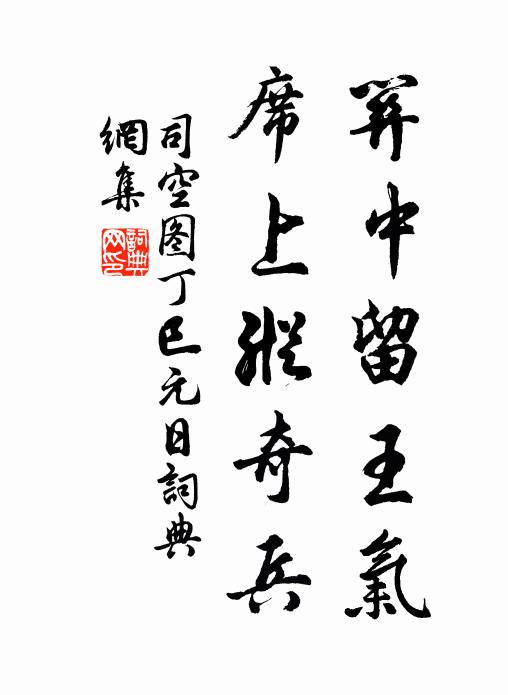 關中留王氣
席上縱奇兵
司空图丁巳元日詞典
網集
詞典
网印